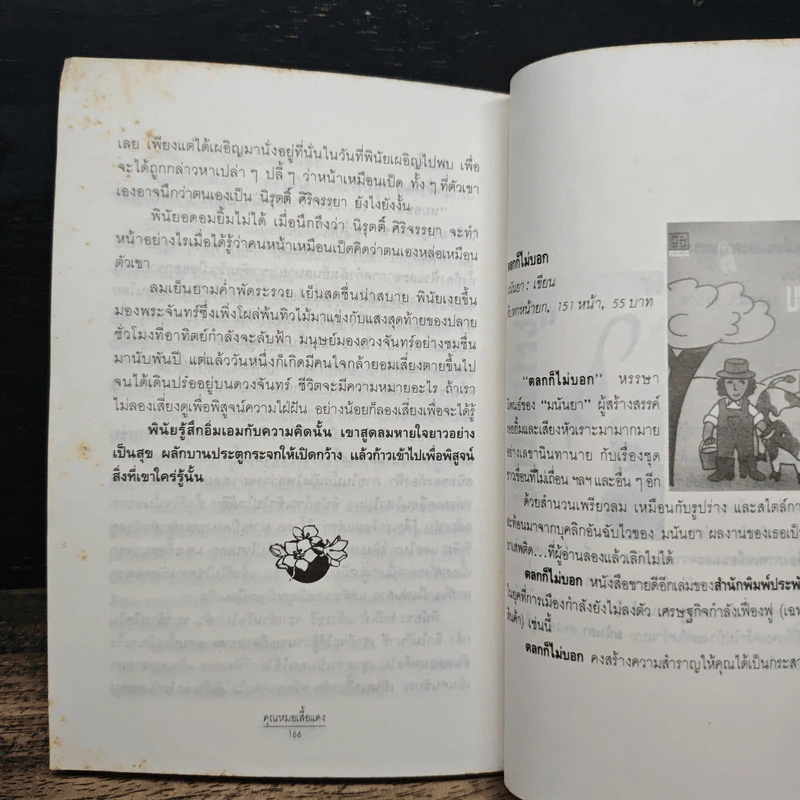 เลย เพียงแต่ได้เผอิญมานั่งอยู่ที่นั่นในวันที่พินัยเผอิญไปพบ เพื่อ
จะได้ถูกกล่าวหาเปล่า ๆ ปลี้ ๆ ว่าหน้าเหมือนเป็ด ทั้ง ๆ ที่ตัวเขา
เองอาจนึกว่าตนเองเป็น นิรุตติ์ ศิริจรรยา ยังไงยังงั้น
พินัยอดอมยิ้มไม่ได้ เมื่อนึกถึงว่า นิรุตติ์ ศิริจรรยา จะทำ
หน้าอย่างไรเมื่อได้รู้ว่าคนหน้าเหมือนเป็ดคิดว่าตนเองหล่อเหมือน
ตัวเขา
ลมเย็นยามค่ำพัดระรวย เย็นสดชื่นน่าสบาย พินัยเงยขึ้น
มองพระจันทร์ซึ่งเพิ่งโผล่พ้นทิวไม้มาแข่งกับแสงสุดท้ายของปลาย
ชั่วโมงที่อาทิตย์กำลังจะลับฟ้า มนุษย์มองดวงจันทร์อย่างชมชื่น
มานับพันปี แต่แล้ววันหนึ่งก็เกิดมีคนใจกล้ายอมเสี่ยงตายขึ้นไป
จนได้เดินปร๋ออยู่บนดวงจันทร์ ชีวิตจะมีความหมายอะไร ถ้าเรา
ไม่ลองเสี่ยงดูเพื่อพิสูจน์ความใฝ่ฝัน อย่างน้อยก็ลองเสี่ยงเพื่อจะได้รู้
พินัยรู้สึกอิ่มเอมกับความคิดนั้น เขาสูดลมหายใจยาวอย่าง
เป็นสุข ผลักบานประตูกระจกให้เปิดกว้าง แล้วก้าวเข้าไปเพื่อพิสูจน์
สิ่งที่เขาใคร่รู้นั้น
คุณหมอเสื้อแดง
166
ตลกก็ไม่บอก
มนันยา : เขียน
หน้ายก, 151 หน้า, 55 บาท
"ตลกก็ไม่บอก" หรรษา
ของ "มนันยา" ผู้สร้างสรรค์
และเสียงหัวเราะมามากมาย
อย่างเลขานินทานาย กับเรื่องชุด
ที่ไม่เถื่อน ฯลฯ และอื่น ๆ อีก
ด้วยสำนวนเพรียวลม เหมือนกับรูปร่าง และสไตล์
มาจากบุคลิกอันฉับไวของ มนันยา ผลงานของเธอ
ที่ผู้อ่านลองแล้วเลิกไม่ได้
ตลกก็ไม่บอก หนังสือขายดีอีกเล่มของสำนักพิมพ์
ในยุคที่การเมืองกำลังยังไม่ลงตัว เศรษฐกิจกำลังเฟื่องฟู
เช่นนี้
ตลกก็ไม่บอก คงสร้างความสำราญให้คุณได้เป็น